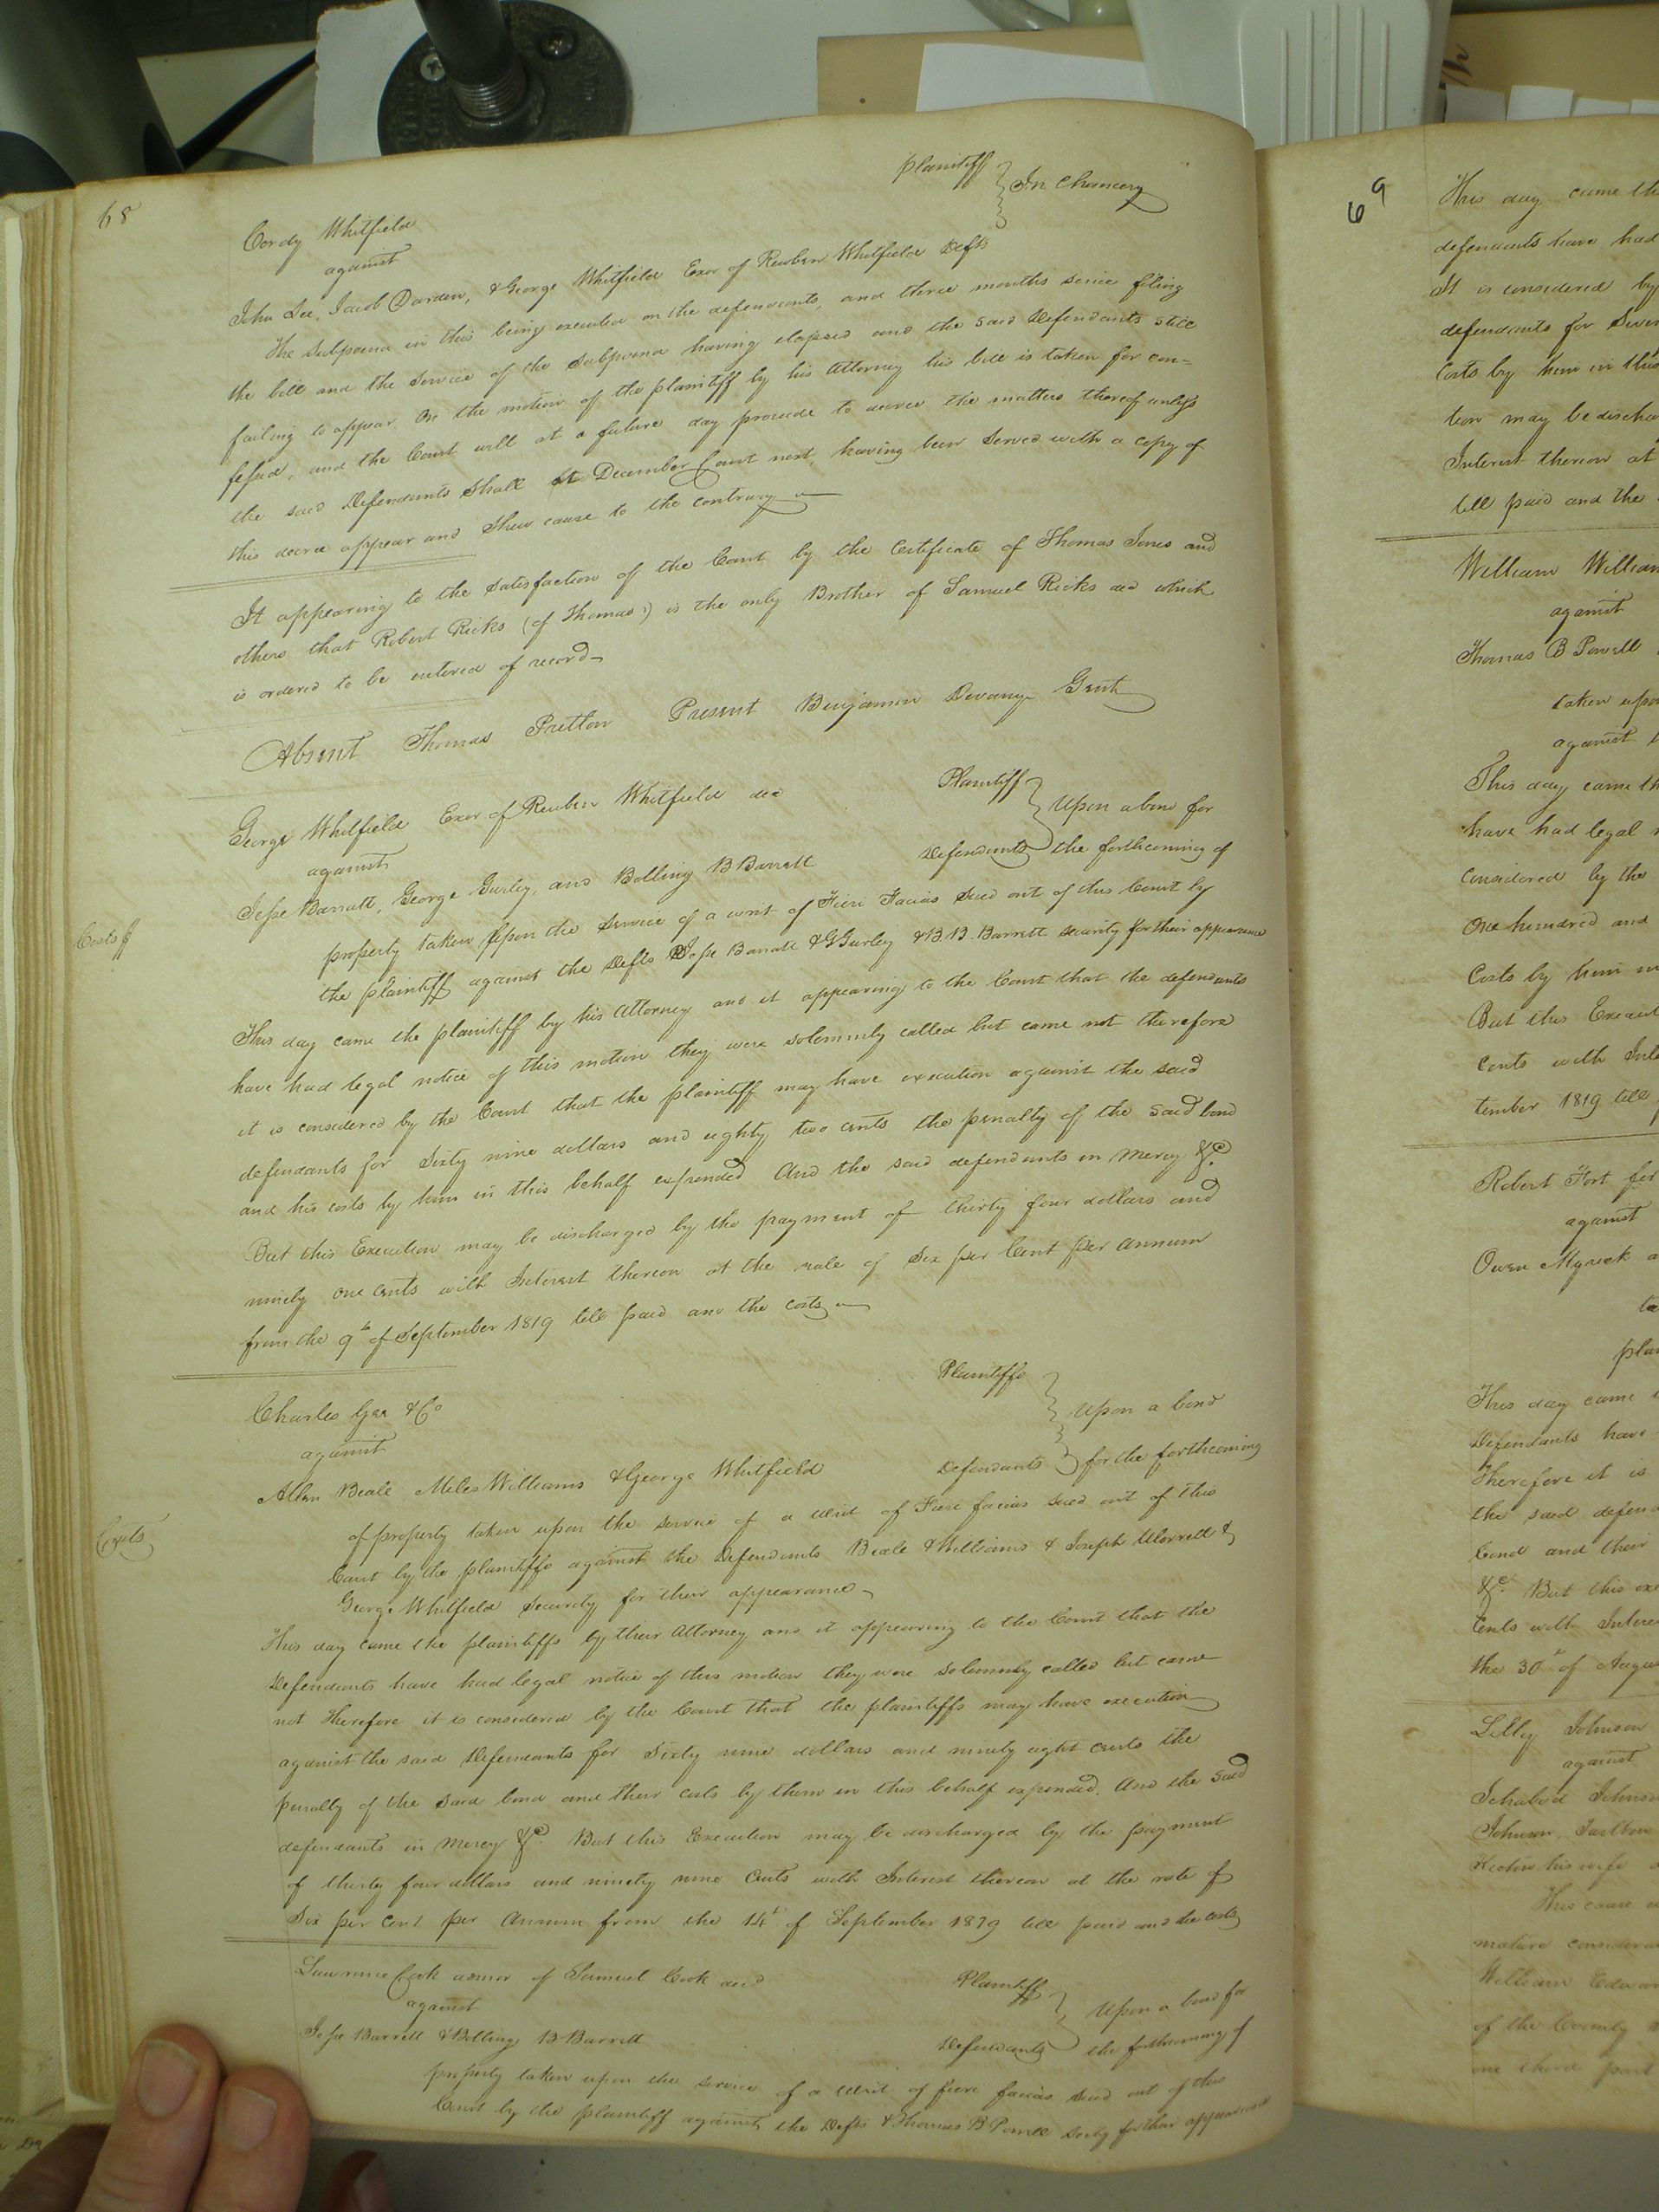 68
Cordy Whitfield plaintiff
against In Chancery
John Lee, Jacob Darden, & George Whitfield Exor of Reuben Whitfield Defts
The Subpoena in this being executed on the defendants, and three months since filing
the bill and the service of the Subpoena having elapsed and the said Defendants still
failing to appear On the motion of the plaintiff by his Attorney his bill is taken for con=
fessed, and the Court will at a future day proceede to decree the matters thereof unless
the said Defendants shall at December Court next, having been served with a copy of
this decree appear and shew cause to the contrary
It appearing to the satisfaction of the Court by the Certificate of Thomas Jones and
others that Robert Ricks (of Thomas) is the only Brother of Samuel Ricks decd which
is ordered to be entered of record
Absent Thomas Pretlow Present Benjamin Devany Gent
George Whitfield Exor of Reuben Whitfield dec Plaintiff
against Upon a bond for
Jesse Barrett, George Gurley, and Bolling B Barrett Defendants the forthcoming of
property taken upon the service of a writ of Fieri Facias sued out of this Court by
Costs
the plaintiff against the Defts Jesse Barrett & G Gurley & B.B. Barrett security for their appearance
This day came the plaintiff by his Attorney and it appearing to the Court that the defendants
have had legal notice of this motion they were solemnly called but came not therefore
it is considered by the Court that the plaintiff may have execution against the said
defendants for Sixty nine dollars and eighty two cents the penalty of the said bond
and his costs by him in this behalf expended And the said defendants in Mercy &c.
But this Execution may be discharged by the payment of thirty four dollars and
ninety one cents with Interest thereon at the rate of Six per Cent per annum
from the 9th of September 1819 till paid and the costs
Charles Gee & Co Plaintiffs
against Upon a bond
Allen Beale Miles Williams & George Whitfield Defendants for the forthcoming
of property taken upon the service of a writ of Fieri facias sued out of this
Costs
Court by the plaintiffs against the Defendants Beale & Williams & Joseph Worrell &
George Whitfield Security for their appearance
This day came the plaintiffs by their Attorney and it appearing to the Court that the
Defendants have had legal notice of this motion they were solemnly called but came
not Therefore it is considered by the Court that the plaintiffs may have execution
against the said Defendants for Sixty nine dollars and ninety eight cents the
penalty of the said bond and their costs by them in this behalf expended. And the said
defendants in Mercy &c. But this Execution may be discharged by the payment
of thirty four dollars and ninety nine Cents with Interest thereon at the rate of
Six per Cent per Annum from the 14th of September 1819 till paid and the costs
Lawrence Cook admor of Samuel Cook decd Plaintiff
against Upon a bond for
Jesse Barrett & Bolling B Barrett Defendants the forthcoming of
property taken upon the service of a Writ of fieri facias sued out of this
Court by the plaintiff against the Defts & Thomas B Powell Secty for their appearance
69
This day came th
defendants have had
It is considered by
defendants for Seven
Costs by him in this
tion may be discha
Interest thereon at
till paid and the
William William
against
Thomas B Powell
taken upon
against
This day came th
have had legal
Considered by the
One hundred and
Costs by him in
But this Execut
Cents with Inte
tember 1819 till
Robert Fort for
against
Owen Myrick a
ta
plai
This day came
Defendants have
Therefore it is
the said defen
bond and their
&c. But this exe
Cents with Intere
the 30th of Augus
Lilly Johnson
against
Ichabod Johnson
Johnson,
his wife
This cause
mature considera
William Edwar
of the County
one third part